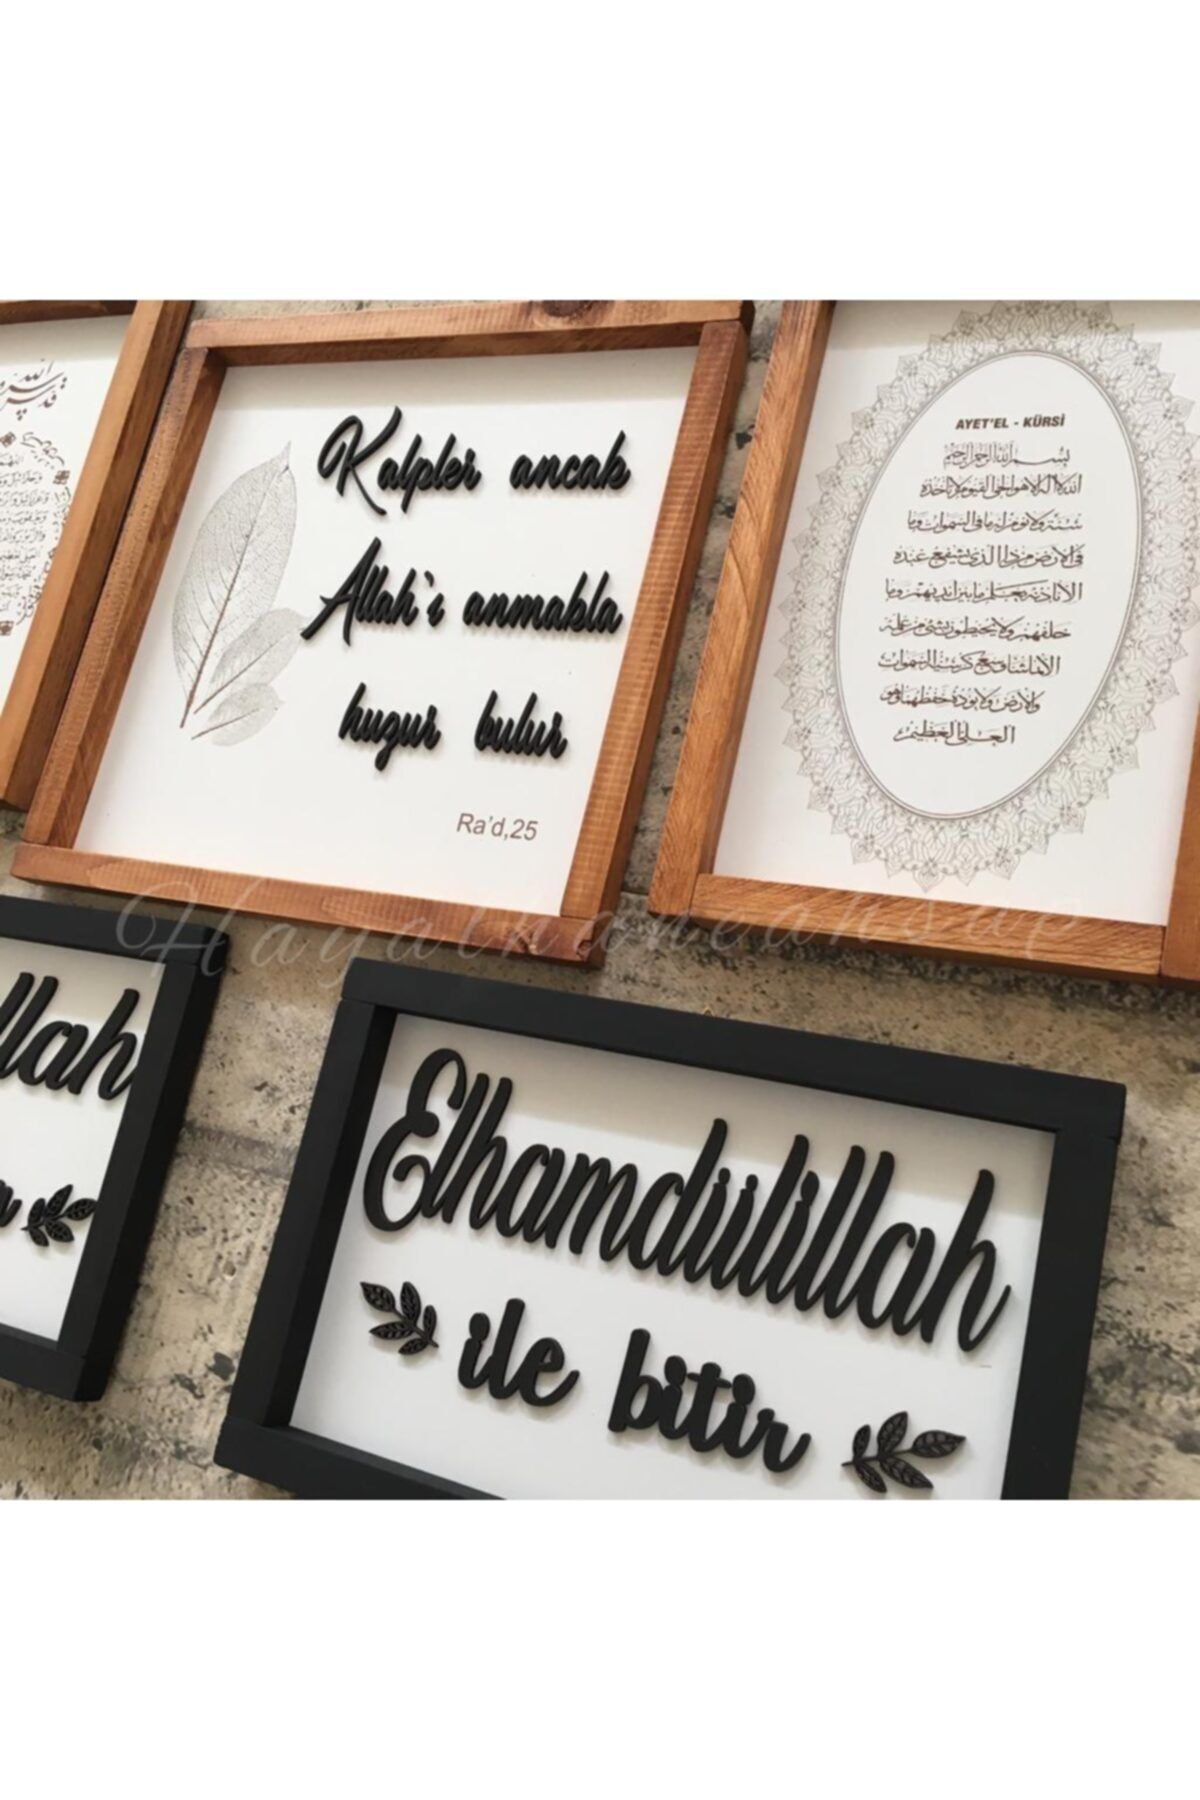 Kalpler ancak
Allah`ı anmakla
huzur bulur
Ra'd,25
AYET'EL - KÜRSİ
بسم الله الرحمن الرحيم
الله لا اله الا هو الحي القيوم لا تأخذه
سنة ولا نوم له ما في السموات وما
في الارض من ذا الذي يشفع عنده
الا باذنه يعلم ما بين ايديهم وما
خلفهم ولا يحيطون بشئ من علمه
الا بما شاء وسع كرسيه السموات
والارض ولا يؤده حفظهما وهو
العلي العظيم
Hayathaneahsap
llah
Elhamdülillah
ile bitir